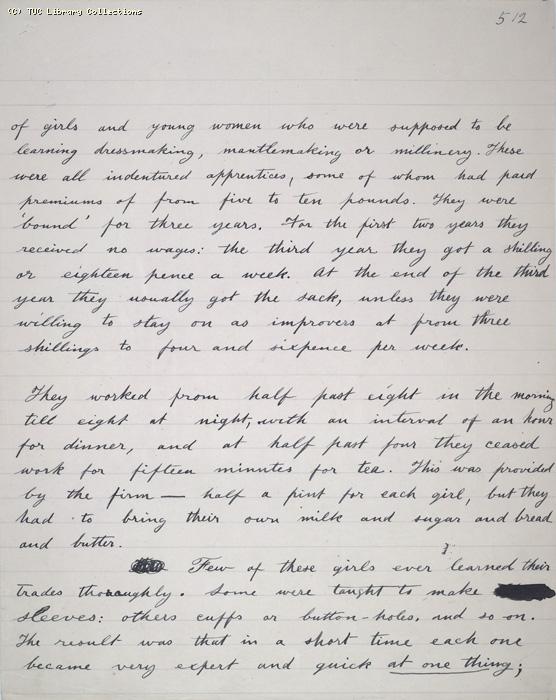 (C) TUC Library Collections
512
of girls and young women who were supposed to be
learning dressmaking, mantlemaking or millinery. These
were all indentured apprentices, some of whom had paid
premiums of from five to ten pounds. They were
'bound' for three years. For the first two years they
received no wages: the third year they got a shilling
or eighteen pence a week. At the end of the third
year they usually got the sack, unless they were
willing to stay on as improvers at from three
shillings to four and sixpence per week.
They worked from half past eight in the morning
till eight at night, with an interval of an hour
for dinner, and at half past four they ceased
work for fifteen minutes for tea. This was provided
by the firm — half a pint for each girl, but they
had to bring their own milk and sugar and bread
and butter.
Few of these girls ever learned their
trades thoroughly. Some were taught to make
sleeves: others cuffs or button-holes, and so on.
The result was that in a short time each one
became very expert and quick at one thing;